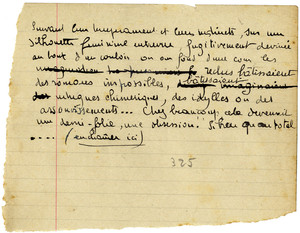 Suivant leur tempérament et leurs instincts, sur une
silhouette féminine entrevue, fugitivement devinée
au bout d'un couloir ou au fond d'une cour les
reclus bâtissaient
des romans impossibles, bâtissaient
des intrigues chimériques, des idylles ou des
assouvissements... Chez beaucoup, cela devenait
une demi-folie, une obsession. Si bien qu'au total
.... (enchaîner ici)
325